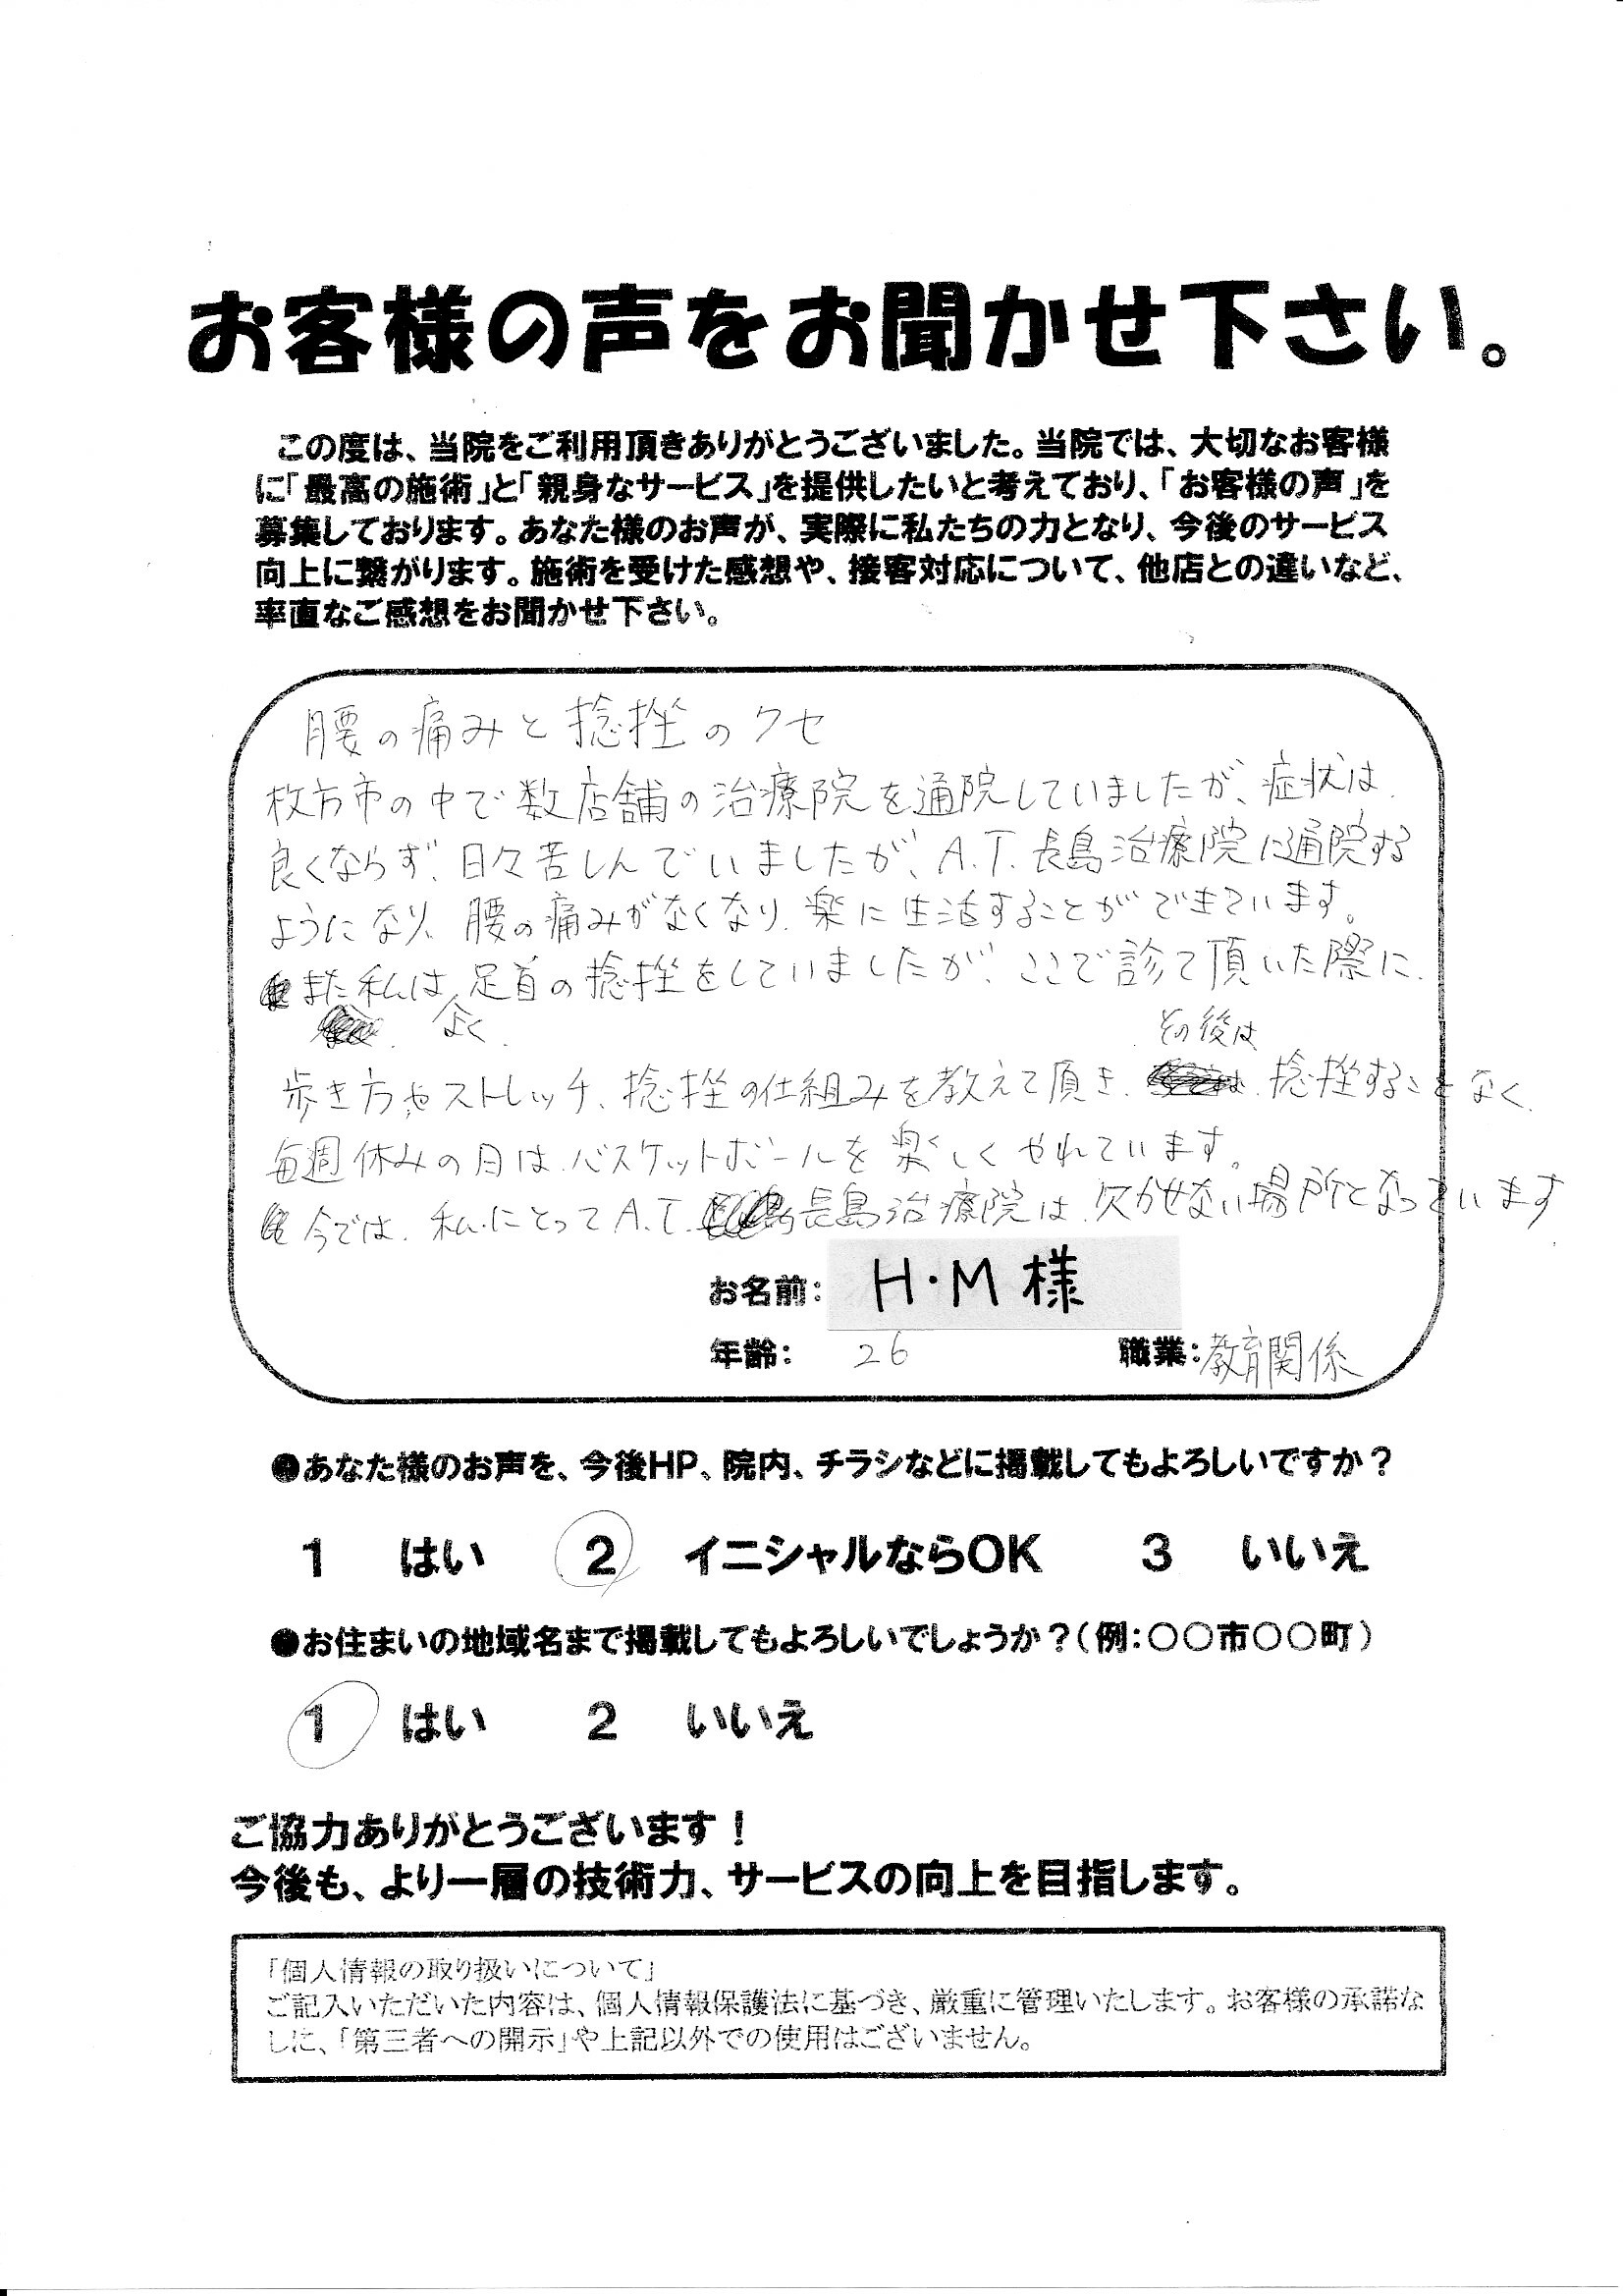 お客様の声をお聞かせ下さい。
この度は、当院をご利用頂きありがとうございました。当院では、大切なお客様
に「最高の施術」と「親身なサービス」を提供したいと考えており、「お客様の声」を
募集しております。あなた様のお声が、実際に私たちの力となり、今後のサービス
向上に繋がります。施術を受けた感想や、接客対応について、他店との違いなど、
率直なご感想をお聞かせ下さい。
腰の痛みと捻挫のクセ
枚方市の中で数店舗の治療院を通院していましたが、症状は
良くならず、日々苦しんでいましたが、A.T.長島治療院に通院する
ようになり、腰の痛みがなくなり、楽に生活することができています。
また私は、よく足首の捻挫をしていましたが、ここで診て頂いた際に、
歩き方やストレッチ、捻挫の仕組みを教えて頂き、その後は、捻挫することなく、
毎週休みの日は、バスケットボールを楽しくやれています。
今では、私にとってA.T.長島治療院は、欠かせない場所となっています
お名前: H・M 様
年齢: 26 職業:教育関係
●あなた様のお声を、今後HP、院内、チラシなどに掲載してもよろしいですか？
1 はい 2 イニシャルならOK 3 いいえ
●お住まいの地域名まで掲載してもよろしいでしょうか？(例:○○市○○町)
1 はい 2 いいえ
ご協力ありがとうございます！
今後も、より一層の技術力、サービスの向上を目指します。
「個人情報の取り扱いについて」
ご記入いただいた内容は、個人情報保護法に基づき、厳重に管理いたします。お客様の承諾な
しに、「第三者への開示」や上記以外での使用はございません。